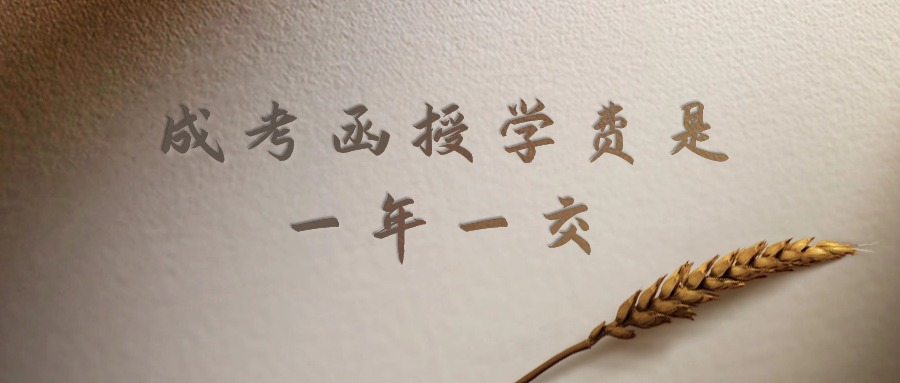 成考函授学费是
一年一交